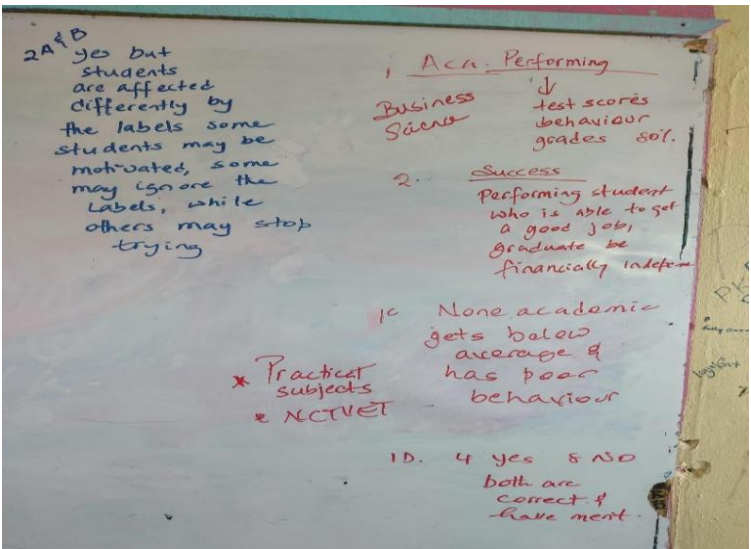 2A & B
yes but
students
are affected
differently by
the labels some
students may be
motivated, some
may ignore the
Labels, while
others may stop
trying
1 Aca. Performing
Business
Science
↓
test scores
behaviour
grades 80%.
2. Success
Performing student
who is able to get
a good job,
graduate be
financially indepen
1c None academic
gets below
average &
has poor
behaviour
* Practical
subjects
* NCTVET
1D. 4 yes & NO
both are
correct &
have merit.